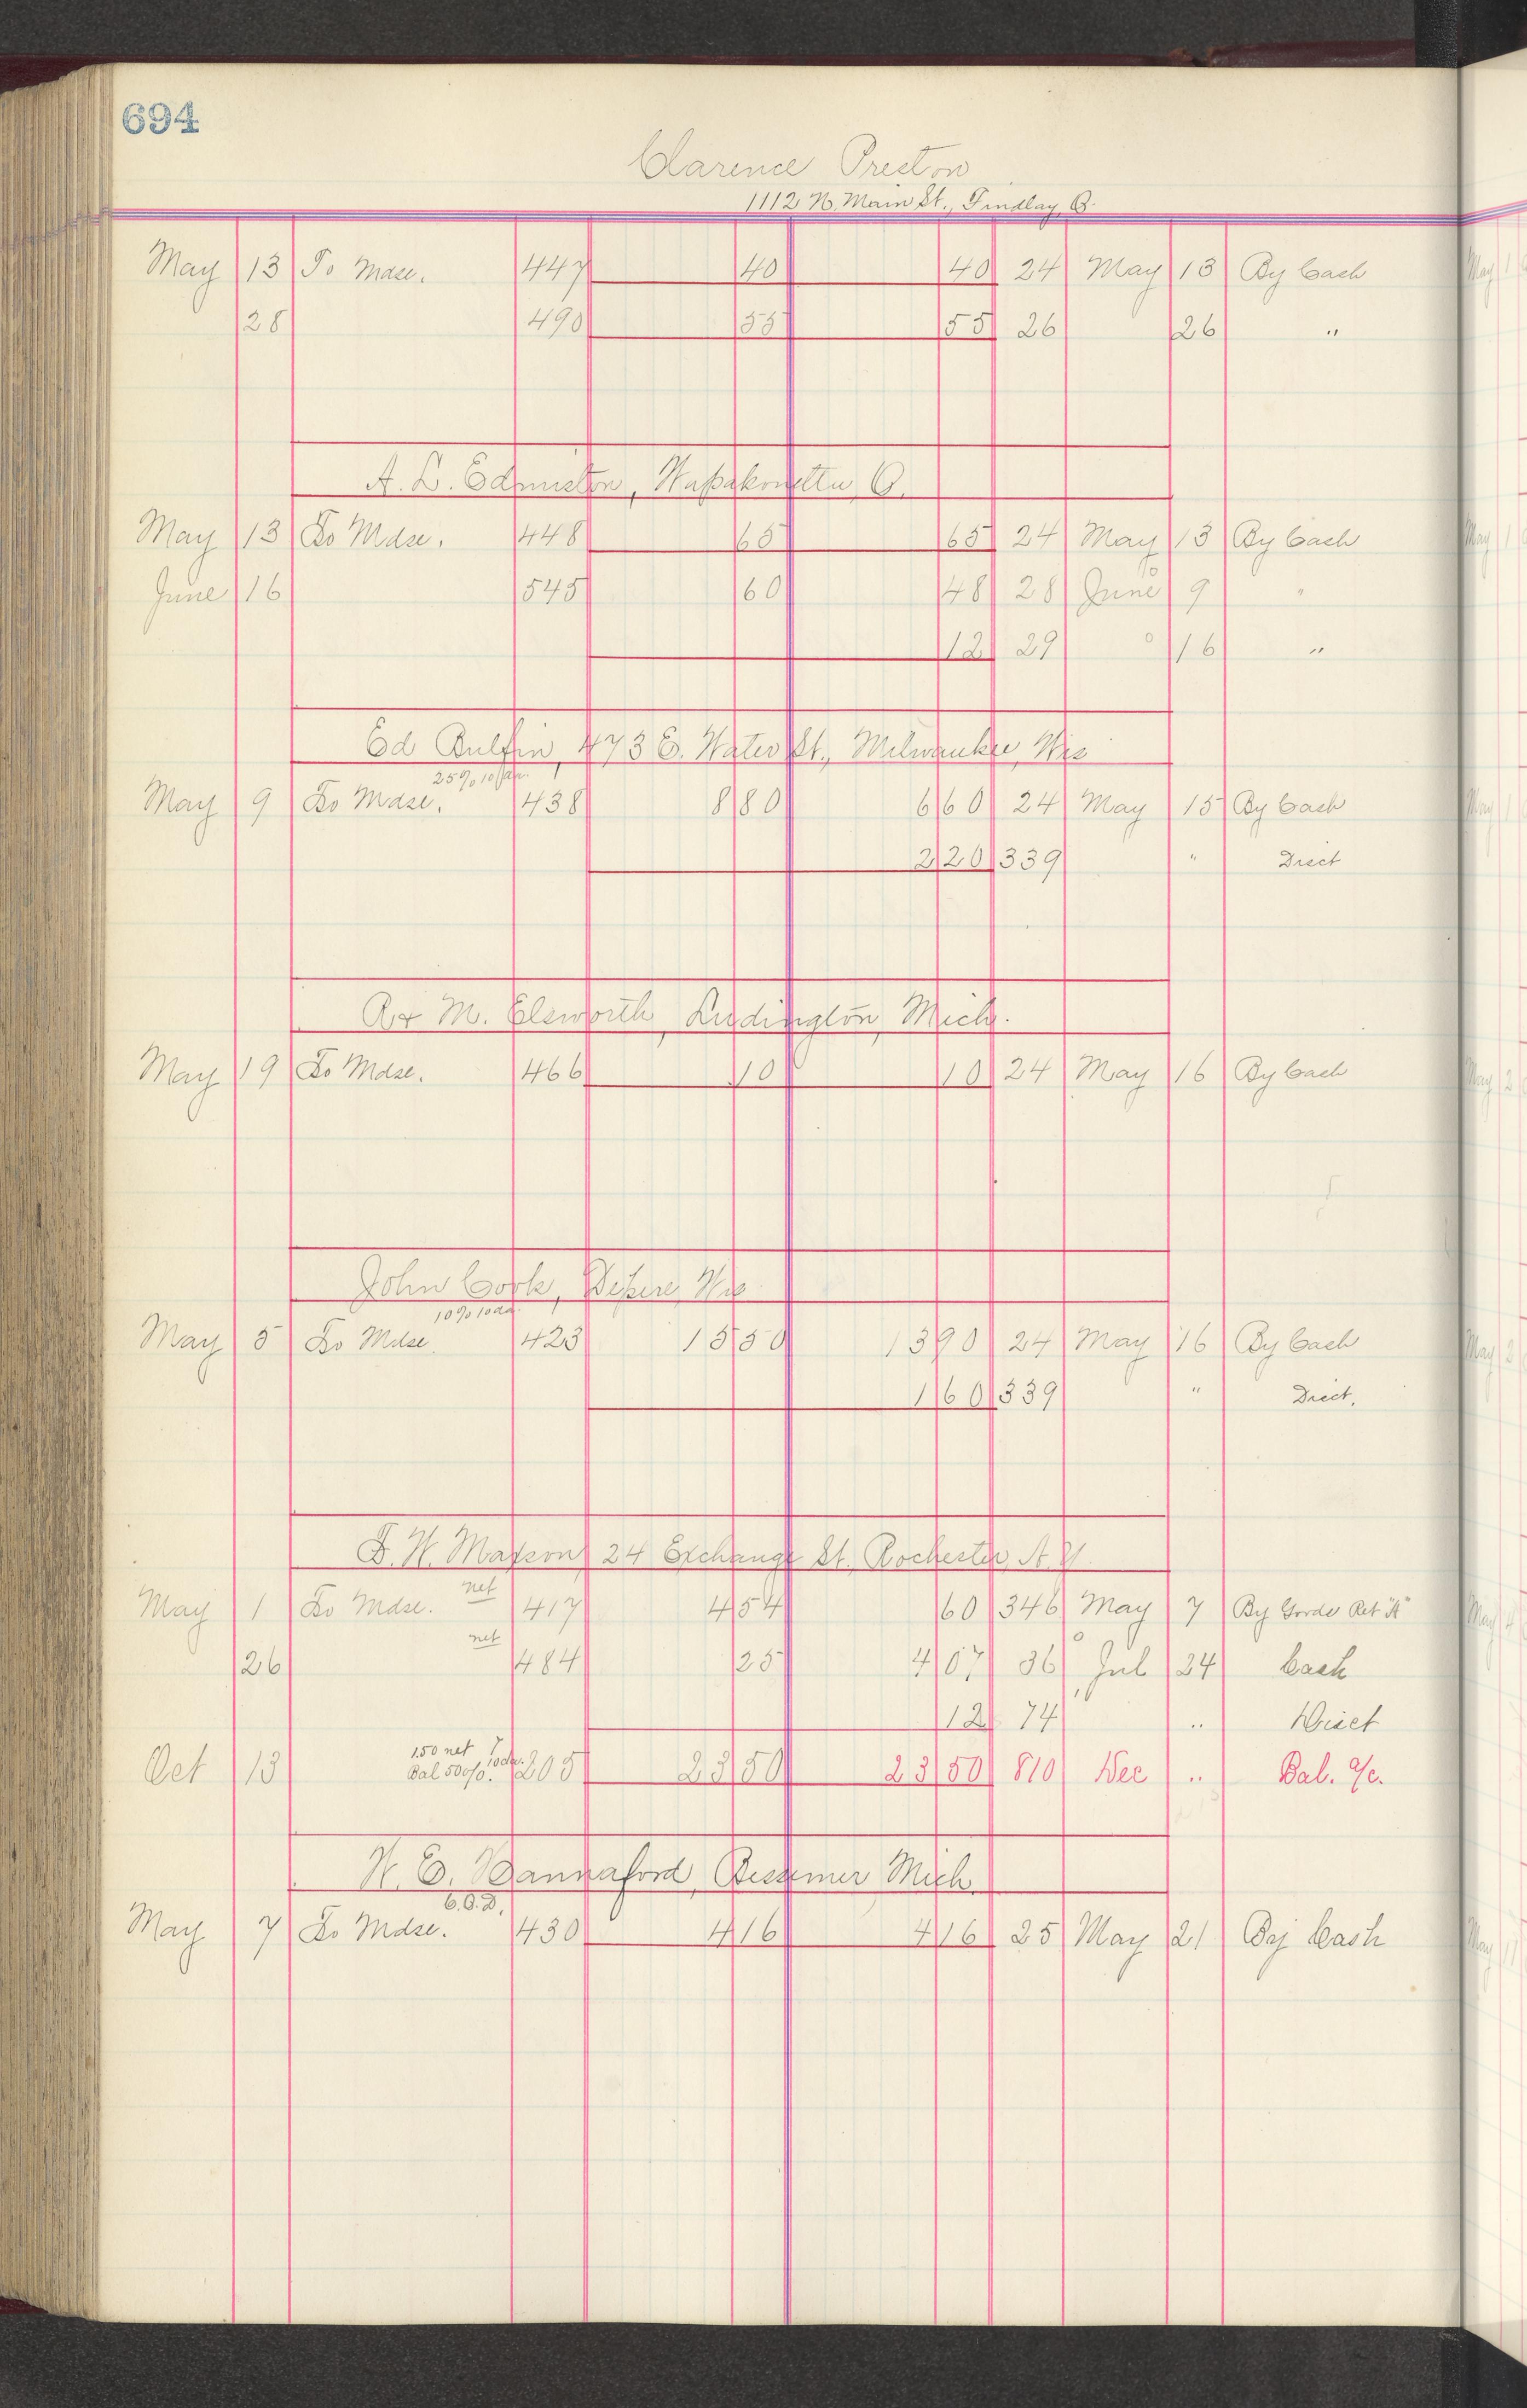 694
Clarence Preston
1112 N. Main St., Findlay, O.
May 13 To Mdse. 447 40 40 24 May 13 By Cash
28 490 55 55 26 26 "
A. L. Edmiston, Wapakonetta, O.
May 13 To Mdse. 448 65 65 24 May 13 By Cash
June 16 545 60 48 28 June 9 "
12 29 16 "
Ed Bulfin, 473 E. Water St., Milwaukee, Wis
25% 10 da.
May 9 To Mdse. 438 8 80 6 60 24 May 15 By Cash
2 20 339 " Disct
R & M. Elsworth, Ludington, Mich.
May 19 To Mdse. 466 10 10 24 May 16 By Cash
John Cook, Depere, Wis
10% 10 da.
May 5 To Mdse 423 15 50 13 90 24 May 16 By Cash
1 60 339 " Disct.
F. W. Maxson, 24 Exchange St. Rochester, N. Y.
May 1 To Mdse. net 417 4 54 60 346 May 7 By Goods Ret "A"
26 net 484 25 4 07 36 Jul 24 Cash
12 74 " Disct
Oct 13 1.50 net Bal 50% 10 da. 205 23 50 23 50 810 Dec " Bal. a/c.
W. E. Hannaford, Bessemer Mich.
C.O.D.
May 7 To Mdse. 430 4 16 4 16 25 May 21 By Cash